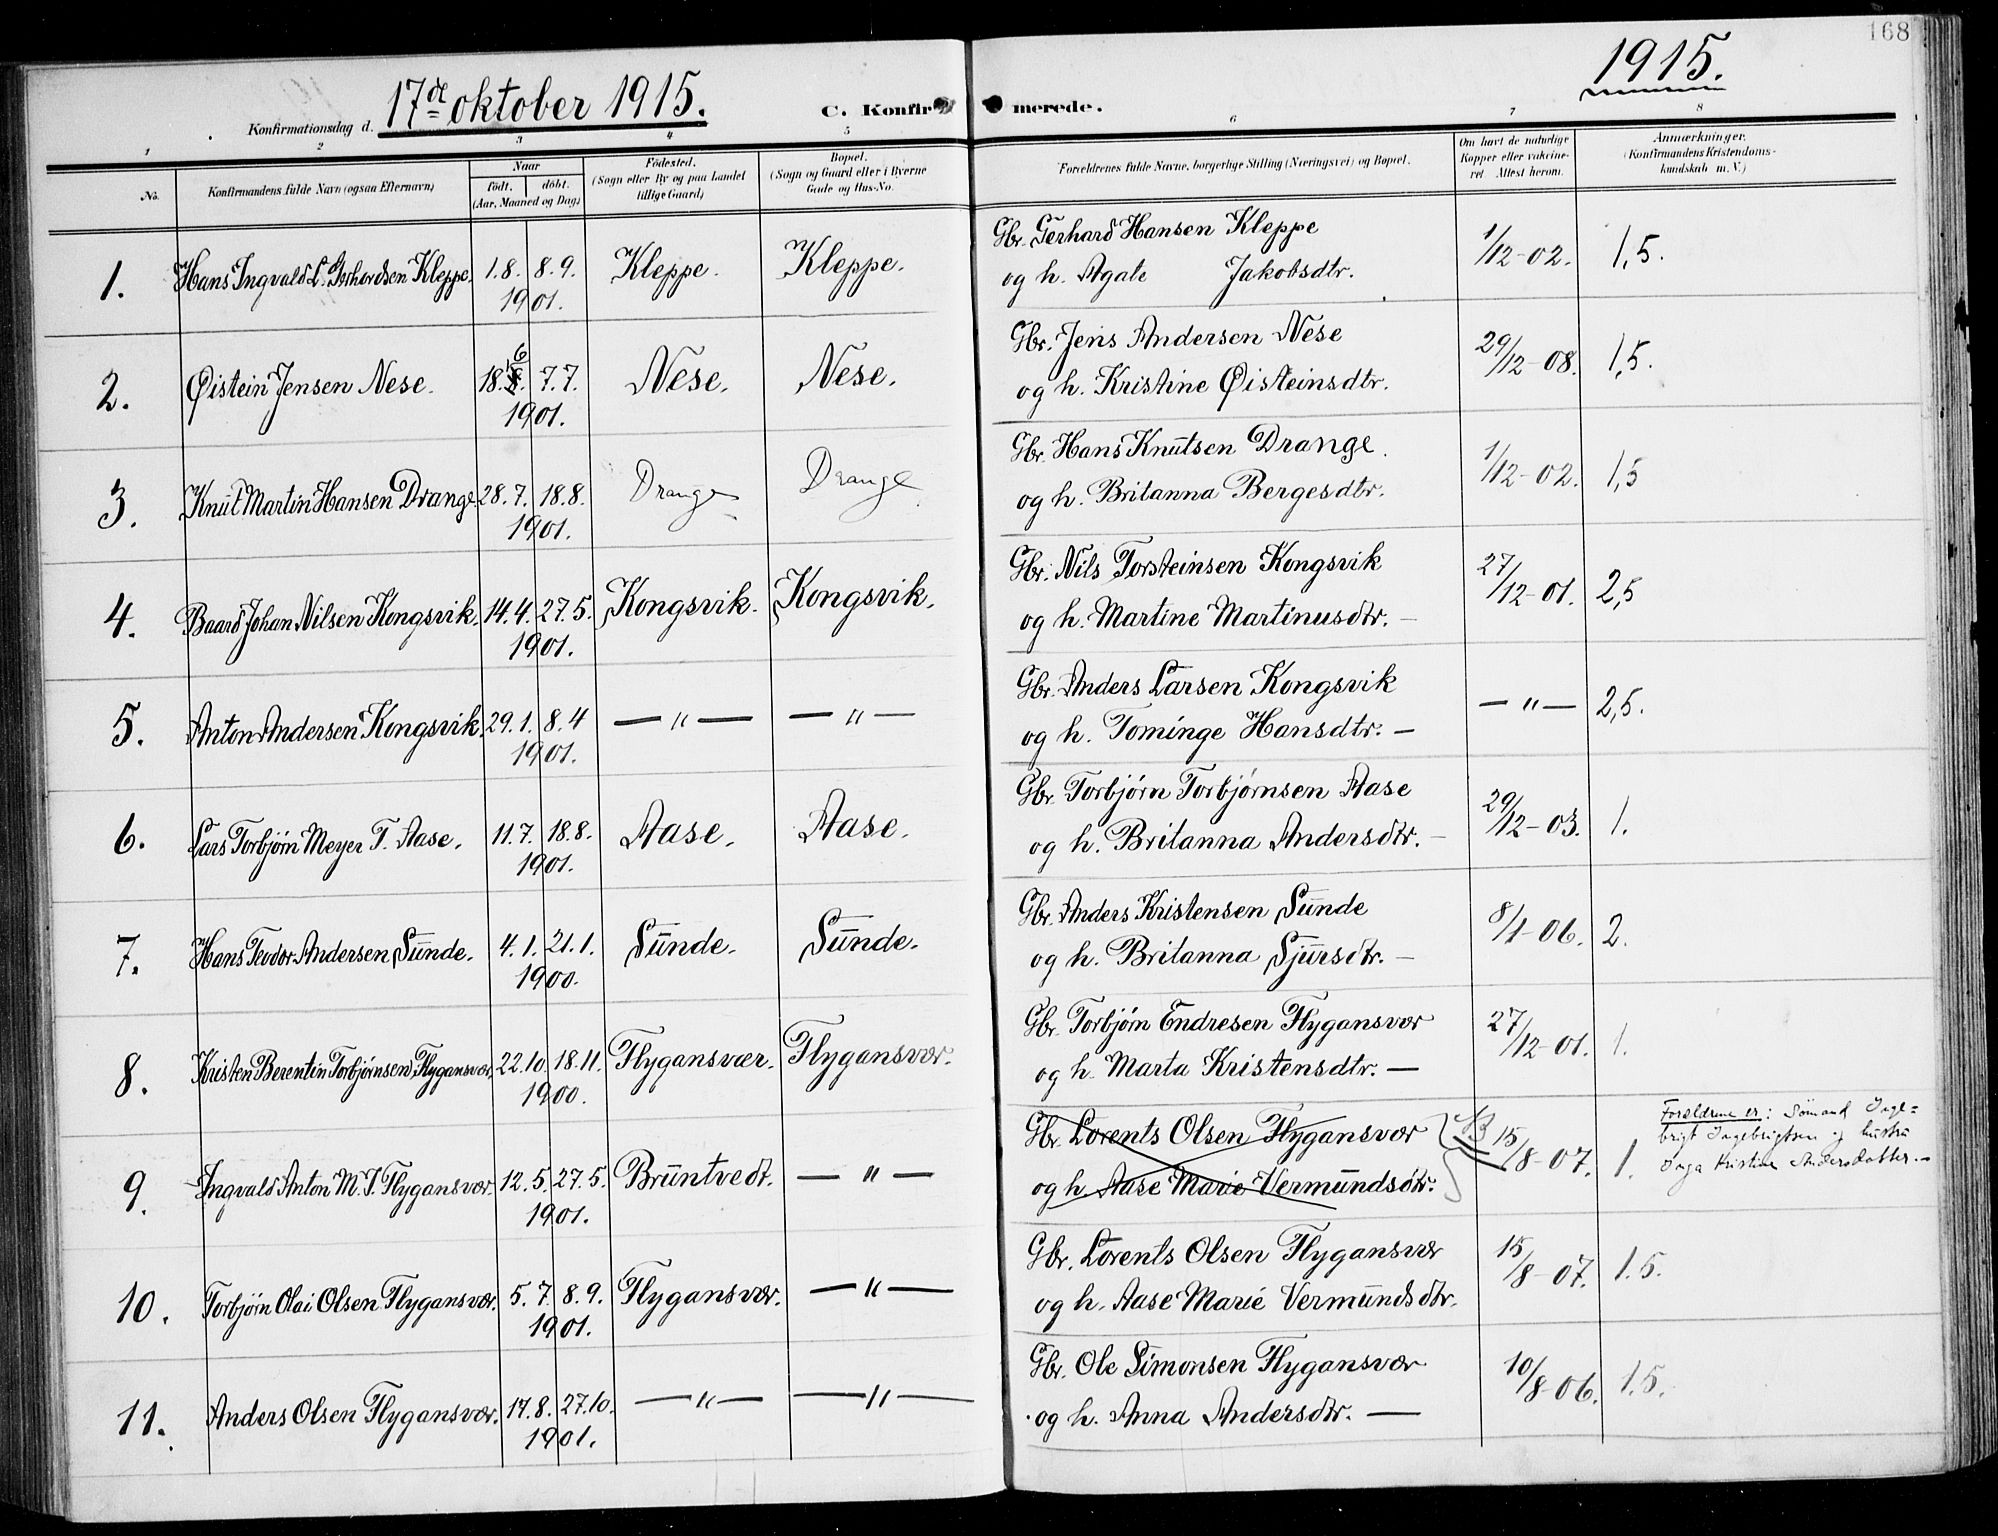 168
1915.
Konfirmationsdag d. 17de oktober 1915.
C. Konfirmerede.
1 2 3 4 5 6 7 8
No. Konfirmandens fulde Navn (ogsaa Efternavn) Naar født. døbt. (Aar, Maaned og Dag) Fødested. (Sogn eller By og paa Landet tillige Gaard) Bopæl. (Sogn og Gaard eller i Byerne Gade og Hus-No. Forældrenes fulde Navne, borgerlige Stilling (Næringsvei) og Bopæl. Om havt de naturlige Kopper eller vakcineret Attest herom. Anmærkninger. (Konfirmandens Kristendomskundskab m. V.)
1. Hans Ingvald L. Gerhardsen Kleppe. 1.8. 8.9. 1901. Kleppe. Kleppe. Gbr. Gerhard Hansen Kleppe
og h. Agate Jakobsdtr. 1/12-02. 1,5.
2. Øistein Jensen Nese. 18.6. 7.7. 1901. Nese. Nese. Gbr. Jens Andersen Nese
og h. Kristine Øisteinsdtr. 29/12-08. 1,5.
3. Knut Martin Hansen Drange. 28.7. 18.8. 1901. Drange Drange Gbr. Hans Knutsen Drange.
og h. Britanna Bergesdtr. 1/12-02. 1,5
4. Baard Johan Nilsen Kongsvik. 14.4. 27.5. 1901. Kongsvik. Kongsvik. Gbr. Nils Torsteinsen Kongsvik
og h. Martine Martinusdtr. — 27/12-01. 2,5
5. Anton Andersen Kongsvik. 29.1. 8.4 1901. — " — — " — Gbr. Anders Larsen Kongsvik
og h. Tominge Hansdtr. — — " — 2,5.
6. Lars Torbjørn Meyer T. Aase. 11.7. 18.8. 1901. Aase. Aase. Gbr. Torbjørn Torbjørnsen Aase
og h. Britanna Andersdtr. — 29/12-03. 1.
7. Hans Teodor Andersen Sunde. 4.1. 21.1. 1900. Sunde. Sunde. Gbr. Anders Kristensen Sunde
og h. Britanna Sjursdtr. — 8/1-06. 2.
8. Kristen Berentin Torbjørnsen Flygansvær. 22.10. 18.11. 1900. Flygansvær. Flygansvær. Gbr. Torbjørn Endresen Flygansvær
og h. Marta Kristensdtr. — 27/12-01. 1.
9. Ingvald Anton M. I. Flygansvær. 12.5. 27.5. 1901. Bruntvedt. — " — Gbr. Lorents Olsen Flygansvær
og h. Aase Marie Vermundsdtr. 15/8-07. 1. Forældrene er: Sømand Inge=
brigt Ingebrigtsen og hustru
Inga Kristine Andersdatter. —
10. Torbjørn Olai Olsen Flygansvær. 5.7. 8.9. 1901. Flygansvær. — " — Gbr. Lorents Olsen Flygansvær
og h. Aase Marie Vermundsdtr. 15/8-07. 1.5.
11. Anders Olsen Flygansvær. 17.8. 27.10. 1901. — " — — " — Gbr. Ole Simonsen Flygansvær
og h. Anna Andersdtr. — 10/8-06. 1.5.